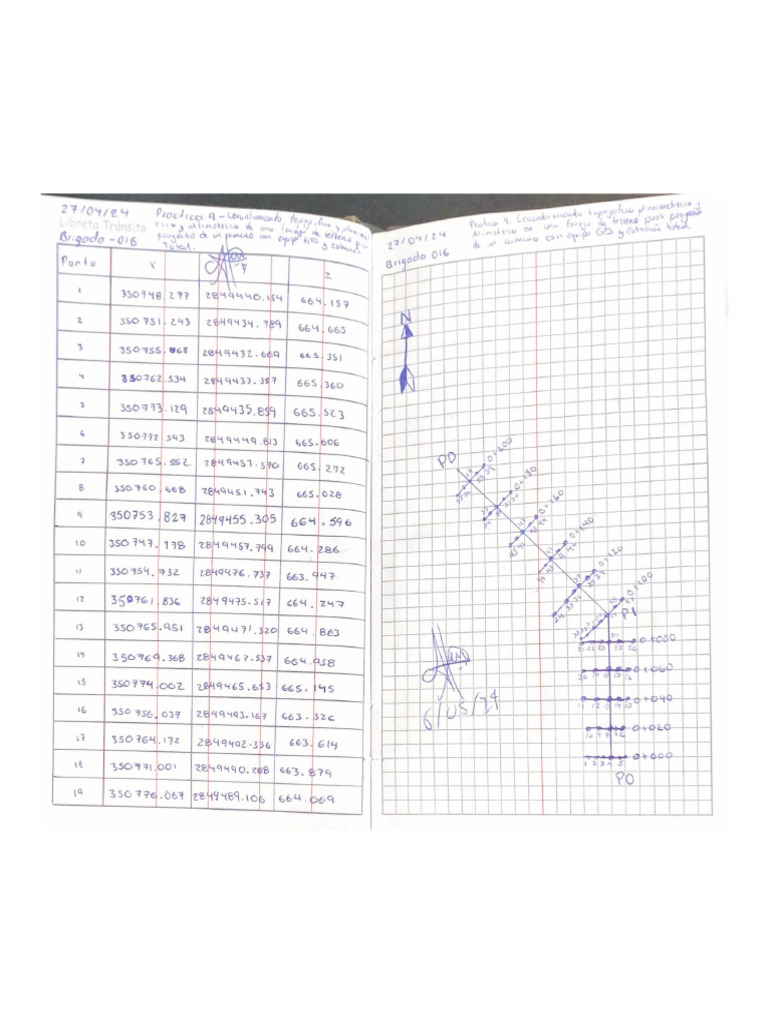 27/04/24
Practica 9 - Levantamiento topografico y planime-
Libreta Tránsito
trico y altimetrico de una franja de terreno para
Brigada - 016
proyecto de un camino con equipo GPS y estación
Total.
Punto X Z
1 350748.277 2849440.154 664.157
2 350751.243 2849434.789 664.665
3 350755.068 2849432.669 665.351
4 350762.534 2849433.357 665.360
5 350773.129 2849435.859 665.523
6 350772.543 2849449.813 665.606
7 350765.552 2849457.590 665.272
8 350760.668 2849451.743 665.028
9 350753.827 2849455.305 664.596
10 350747.178 2849457.799 664.286
11 350754.732 2849476.737 663.947
12 350761.836 2849475.517 664.247
13 350765.951 2849471.320 664.863
14 350769.368 2849467.537 664.958
15 350774.002 2849465.653 665.145
16 350756.037 2849493.167 663.326
17 350764.172 2849492.336 663.614
18 350771.001 2849490.288 663.879
19 350776.067 2849489.106 664.069
27/04/24
Practica 9. Levantamiento topografico planimetrico y
Altimetrico de una franja de terreno para proyecto
Brigada 016
de un camino con equipo GPS y Estación Total
N
PD
0+200
0+180
0+160
0+140
0+120
0+100
P1
0+080
0+060
0+040
0+020
0+000
1 2 3 4 5
P0
6/05/24